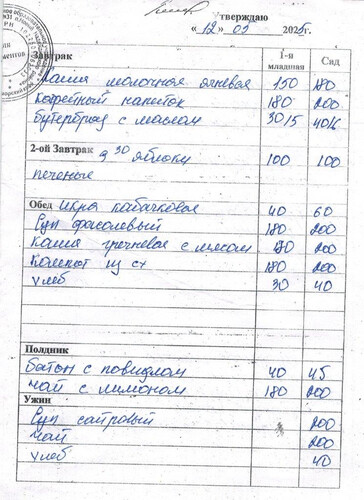 тверждаю
« 12 » 05 2025г.
Завтрак 1-я младшая Сад
Каша молочная ячневая 150 180
Кофейный напиток 180 200
бутерброд с маслом 30/5 40/6
2-ой Завтрак 9 30 яблоки 100 100
печенье
Обед Икра кабачковая 40 60
Суп фасолевый 180 200
Каша гречневая с мясом 170 200
Компот из сх 180 200
хлеб 30 40
Полдник
батон с повидлом 40 45
чай с лимоном 180 200
Ужин
Суп сайровый 200
чай 200
хлеб 40